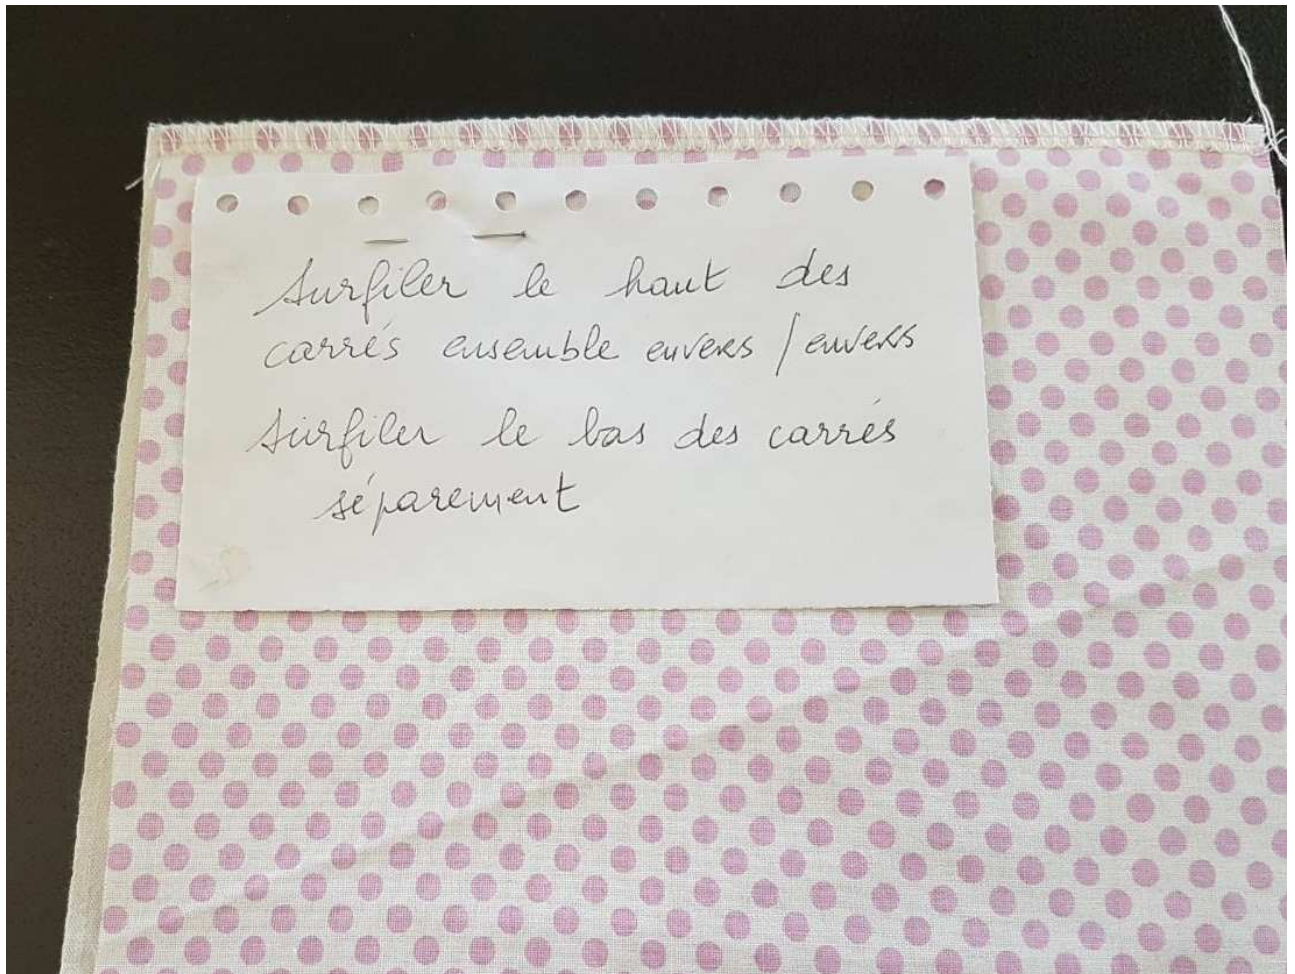 Surfiler le haut des
carrés ensemble envers / envers
Surfiler le bas des carrés
séparement